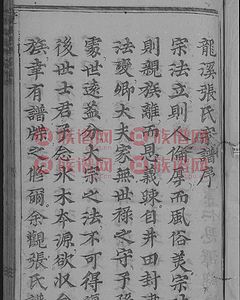 龍溪張氏宗譜序
宗法立則人倫厚而風俗美宗
則親族離而恩義疎自井田封建
法變卿大夫家無世祿之守子孫
處世遠益分大宗之法不可得復
後世士君子念水木本源欲收
族幸有譜牒之修爾余觀張氏譜
族谱网